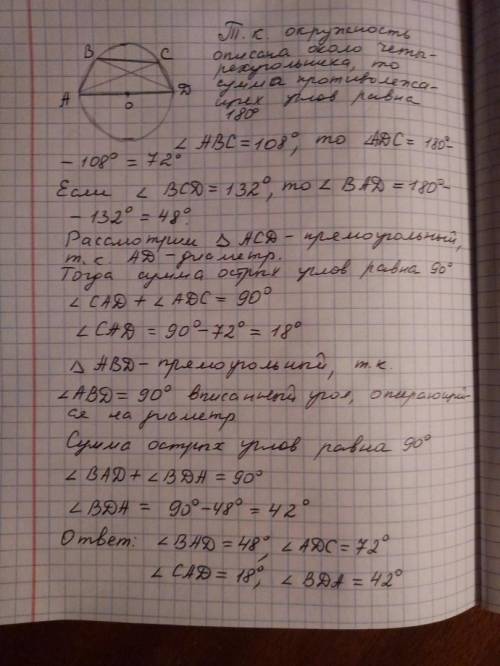 Т.к. окружность
описана около четы-
рехугольника, то
сумма противолежа-
щих углов равна
180°
B C
A D
O
∠ABC=108°, то ∠ADC=180°-
-108°=72°
Если ∠BCD=132°, то ∠BAD=180°-
-132°=48°.
Рассмотрим △ACD-прямоугольный,
т.к. AD-диаметр.
Тогда сумма острых углов равна 90°
∠CAD+∠ADC=90°
∠CAD=90°-72°=18°
△ABD-прямоугольный, т.к.
∠ABD=90° вписанный угол, опирающий-
ся на диаметр
Сумма острых углов равна 90°
∠BAD+∠BDA=90°
∠BDA= 90°-48°=42°
Ответ: ∠BAD=48°, ∠ADC=72°
∠CAD=18°, ∠BDA=42°